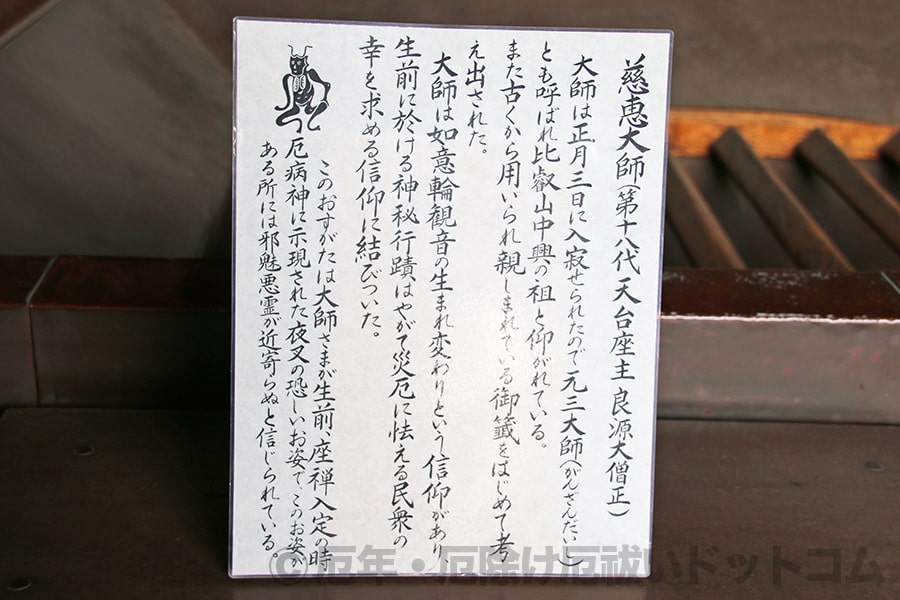 慈恵大師(第十八代 天台座主 良源大僧正)
大師は正月三日に入寂せられたので元三大師(がんざんだいし)
とも呼ばれ比叡山中興の祖と仰がれている。
また古くから用いられ親しまれている御籤をはじめて考
え出された。
大師は如意輪観音の生まれ変わりという信仰があり、
生前に於ける神秘行蹟はやがて災厄に怯える民衆の
幸を求める信仰に結びついた。
このおすがたは大師さまが生前、座禅入定の時
厄病神に示現された夜叉の恐しいお姿で、このお姿が
ある所には邪魅悪霊が近寄らぬと信じられている。
©厄年・厄除け厄祓いドットコム